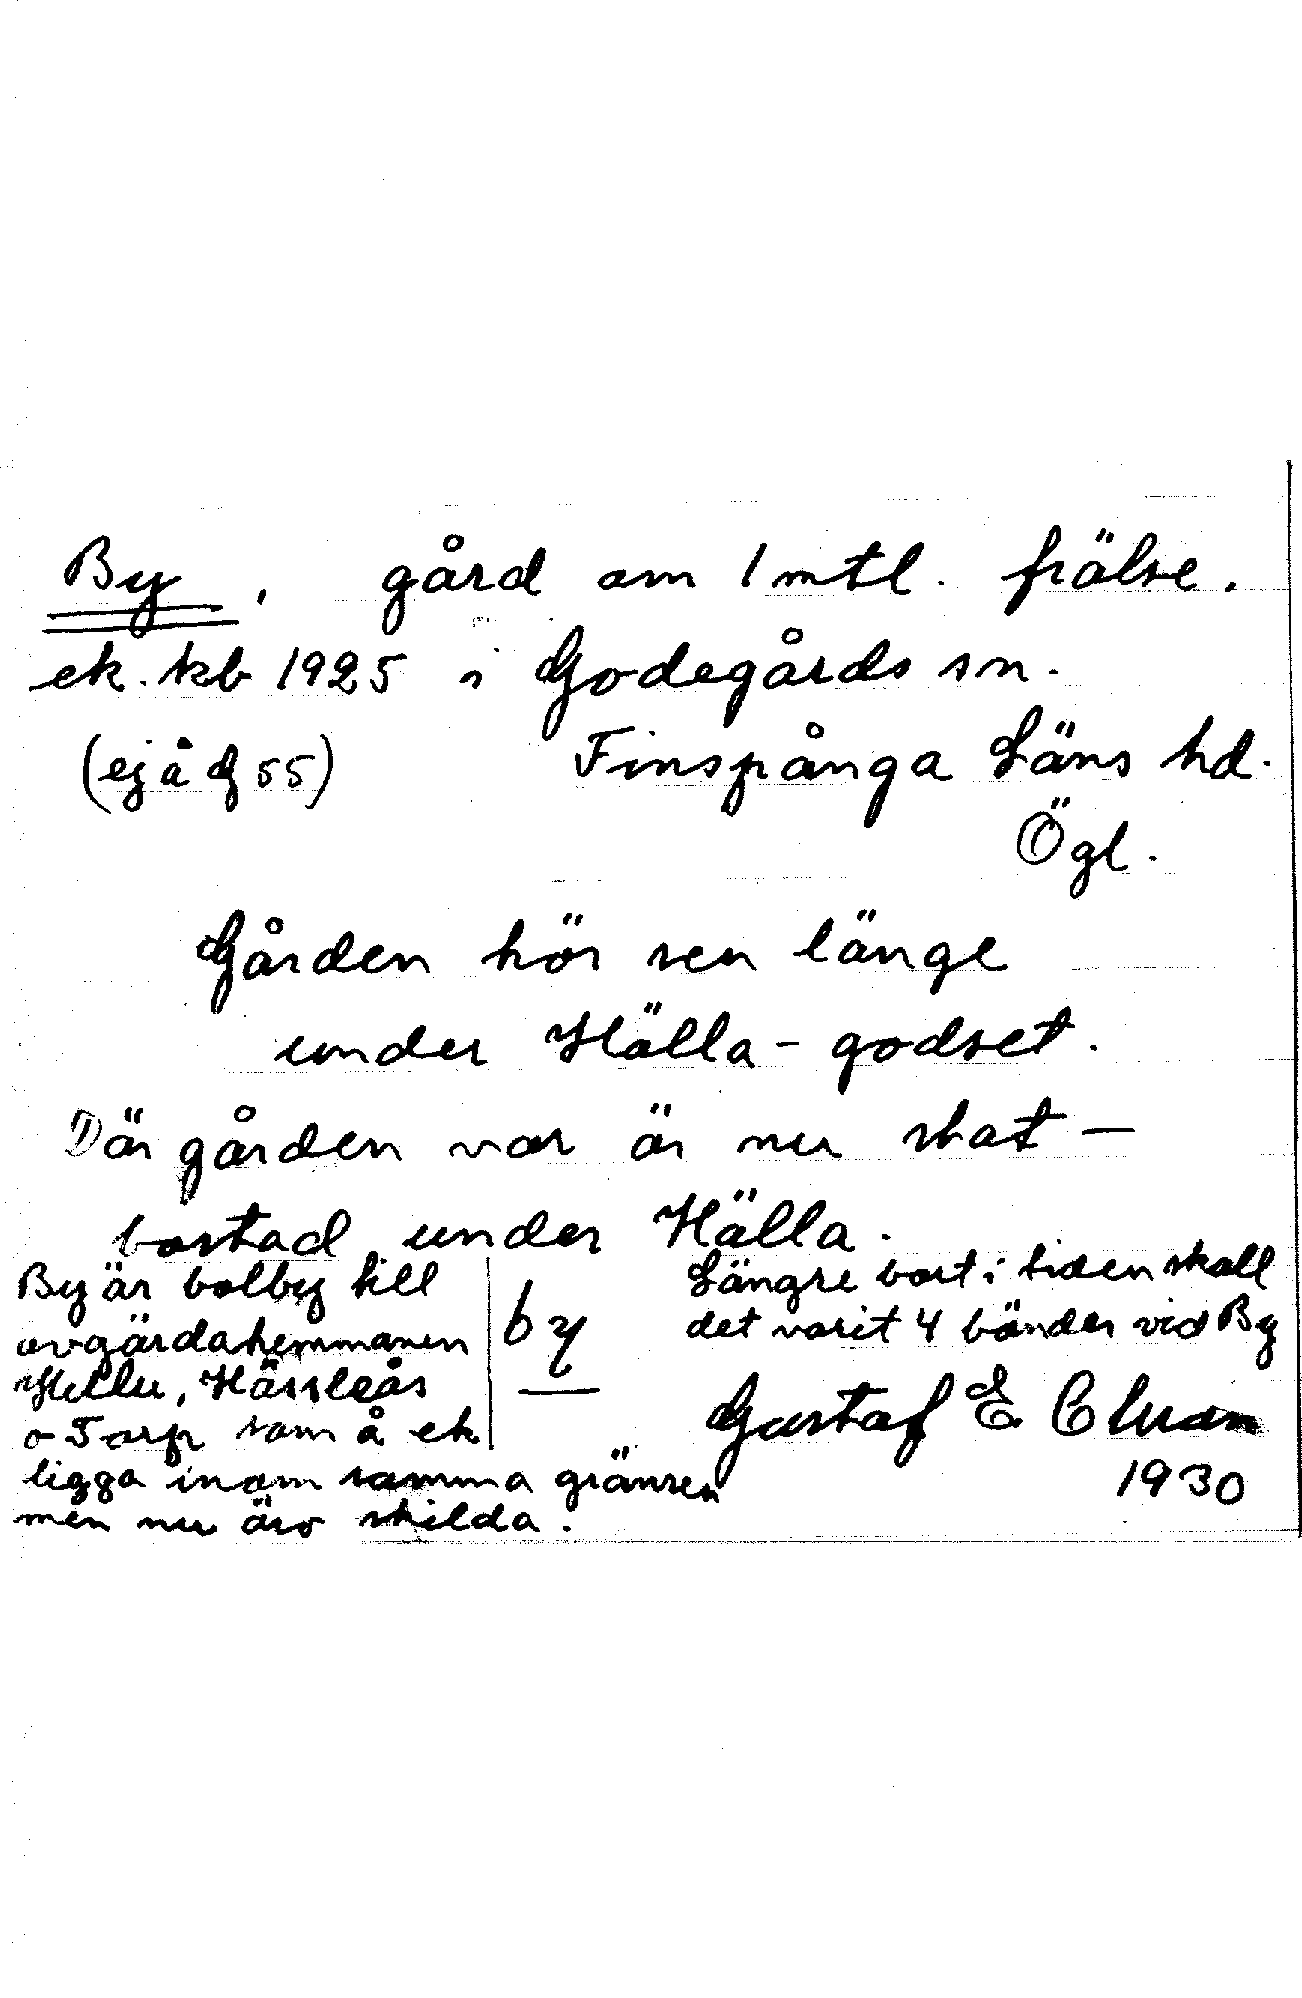 By, gård om 1 mtl. frälse.
ek. kb 1925 i Godegårds sn.
(ej å df 55) Finspånga Läns hd.
Ögl.
Gården hör sen länge
under Hälla-godset.
Där gården var är nu stat-
bostad under Hälla.
By är bolby till
avgärdahemmanen
Hällu, Hässleås
o Torp som å ek
ligga inom samma gränser
men nu äro skilda.
by
Längre bort i tiden skall
det varit 4 bönder vid By
Gustaf E
1930